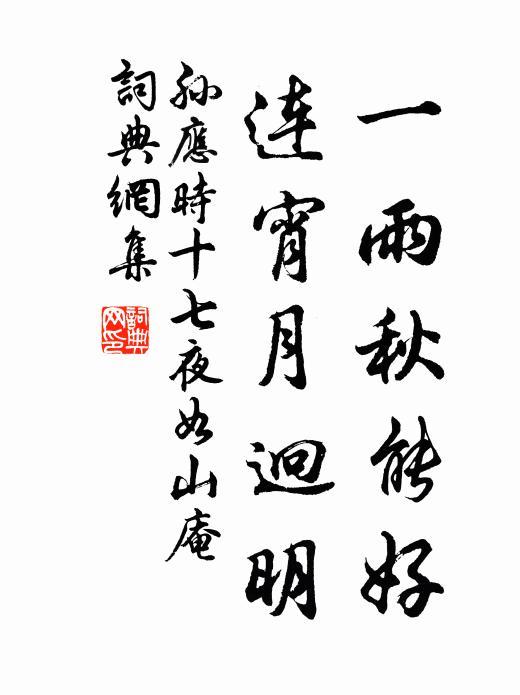 一雨秋能好
連宵月迥明
孫應時十七夜如山庵
詞典網集
詞典
网印